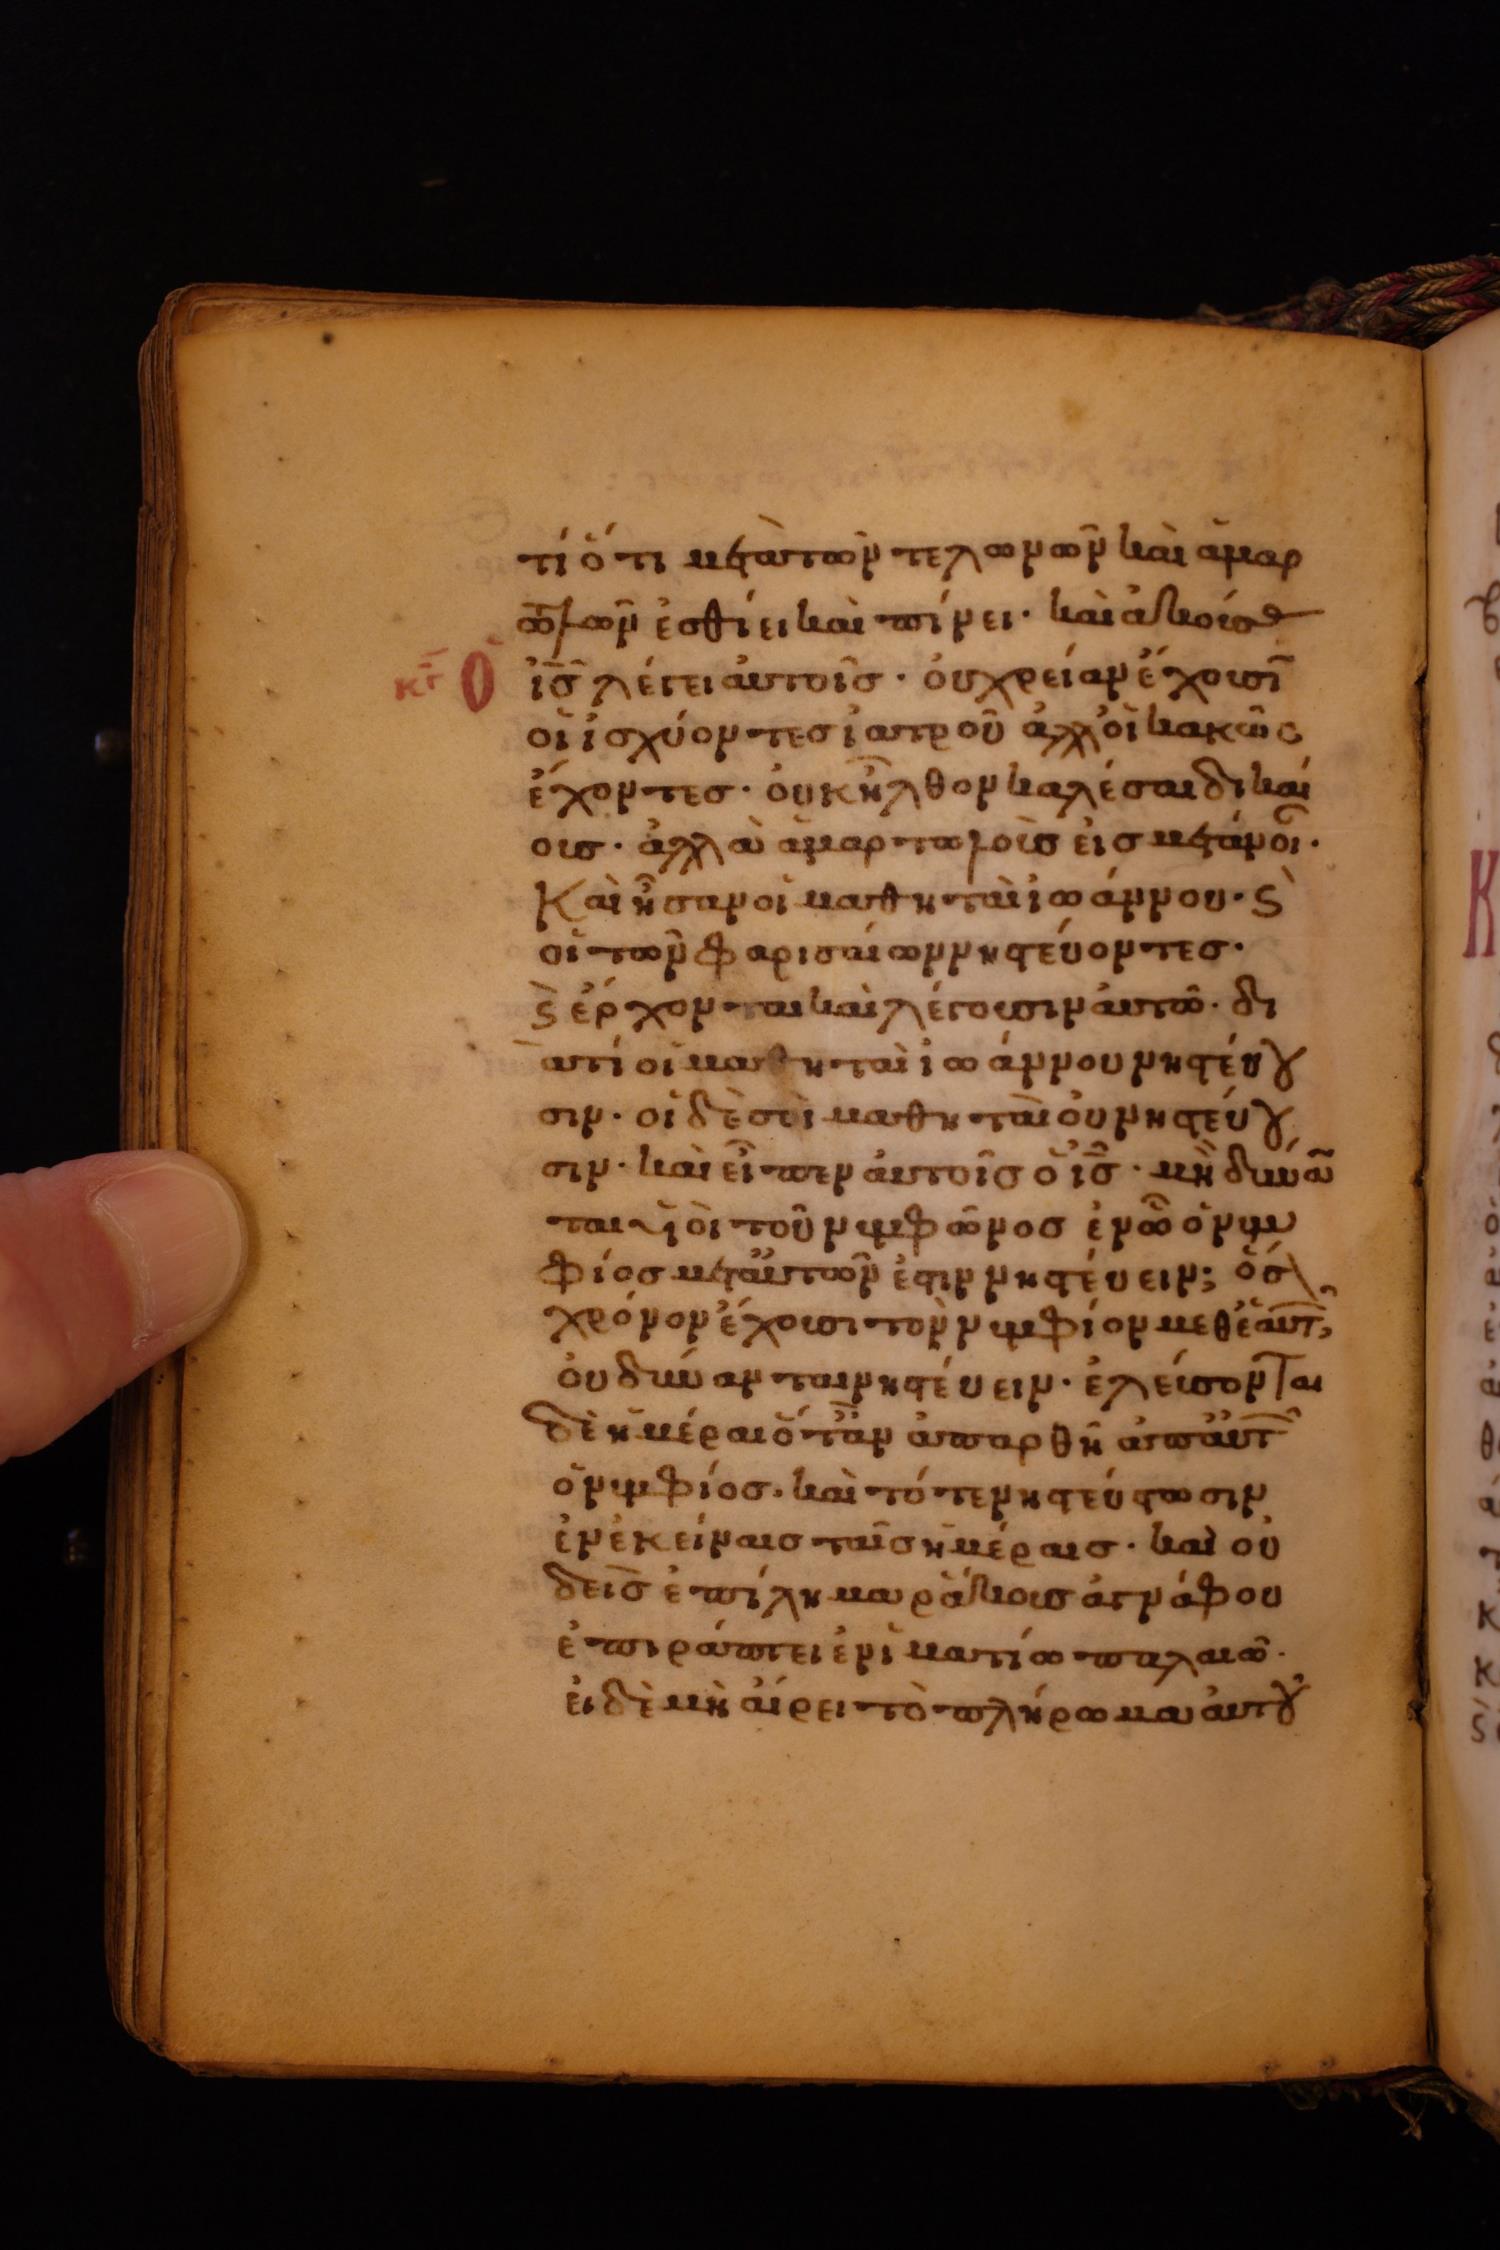 τί ὅτι μετὰ τῶν τελωνῶν καὶ ἁμαρ
τωλῶν ἐσθίει καὶ πίνει· καὶ ἀκούσας
κγ Ὁ ἰς λέγει αὐτοῖσ· ὀυ χρείαν ἔχουσιν
οἱ ἰσχύοντεσ ἰατροῦ ἀλλ' ὁι κακῶς
ἔχοντεσ· ὀυκ ἦλθον καλέσαι δικαί
ουσ· ἀλλὰ ἁμαρτωλοὺσ ἐισ μετάνοιαν·
Καὶ ἦσαν οἱ μαθηταὶ ἰωάννου· ϛ
οἱ τῶν φαρισαίων νηστεύοντεσ·
ϛ ἔρχονται καὶ λέγουσιν ἀυτῶ· δι
ατί οἱ μαθηταὶ ἰωάννου νηστέυου
σιν· οἱ δὲ σοὶ μαθηταὶ ὀυ νηστέυου
σιν· καὶ εἶπεν ἀυτοῖσ ὁ ἰς· μὴ δύναν
ται υἱοὶ τοῦ νυμφῶνοσ ἐν ὧ ὁ νυμ
φίοσ μετ ἀυτῶν ἐστιν νηστέυειν; ὅσον
χρόνον ἔχουσι τὸν νυμφίον μεθ ἑαυτῶν,
ὀυ δύνανται νηστέυειν· ἐλέυσονται
δὲ ἡμέραι ὅταν ἀπαρθῆ ἀπ ἀυτῶν
ὁ νυμφίοσ· καὶ τότε νηστέυσωσιν
ἐν ἐκείναισ ταῖσ ἡμέραισ· καὶ οὐ
δεὶσ ἐπίλημα ῥάκουσ ἀγνάφου
ἐπιράπτει ἐν ἱματίω παλαιῶ·
ἐι δὲ μὴ ἀίρει τὸ πλήρωμα ἀυτοῦ